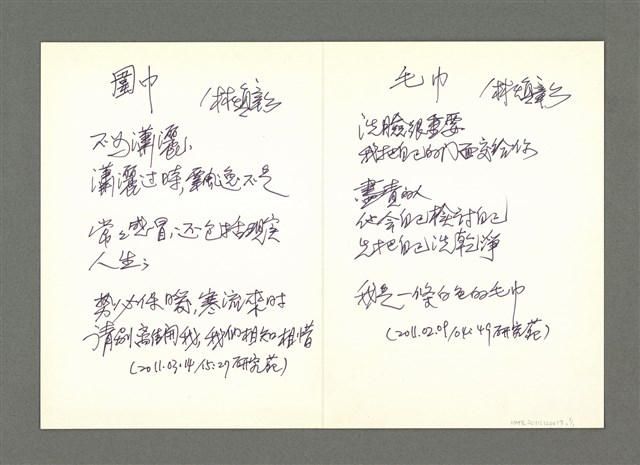 圍巾
林煥彰
不為瀟灑,
瀟灑过時,飄逸不是
常常感冒,还包括現实
人生;
務必保暖,寒流來时
請別离開我,我們相知相惜
(2011.03.14/15:27研究苑)
毛巾
林煥彰
洗臉很重要
我把自己的门面交給你
盡責的人
他会自己檢討自己
先把自己洗乾淨
我是一條白色的毛巾
(2011.02.09/04:49研究苑)